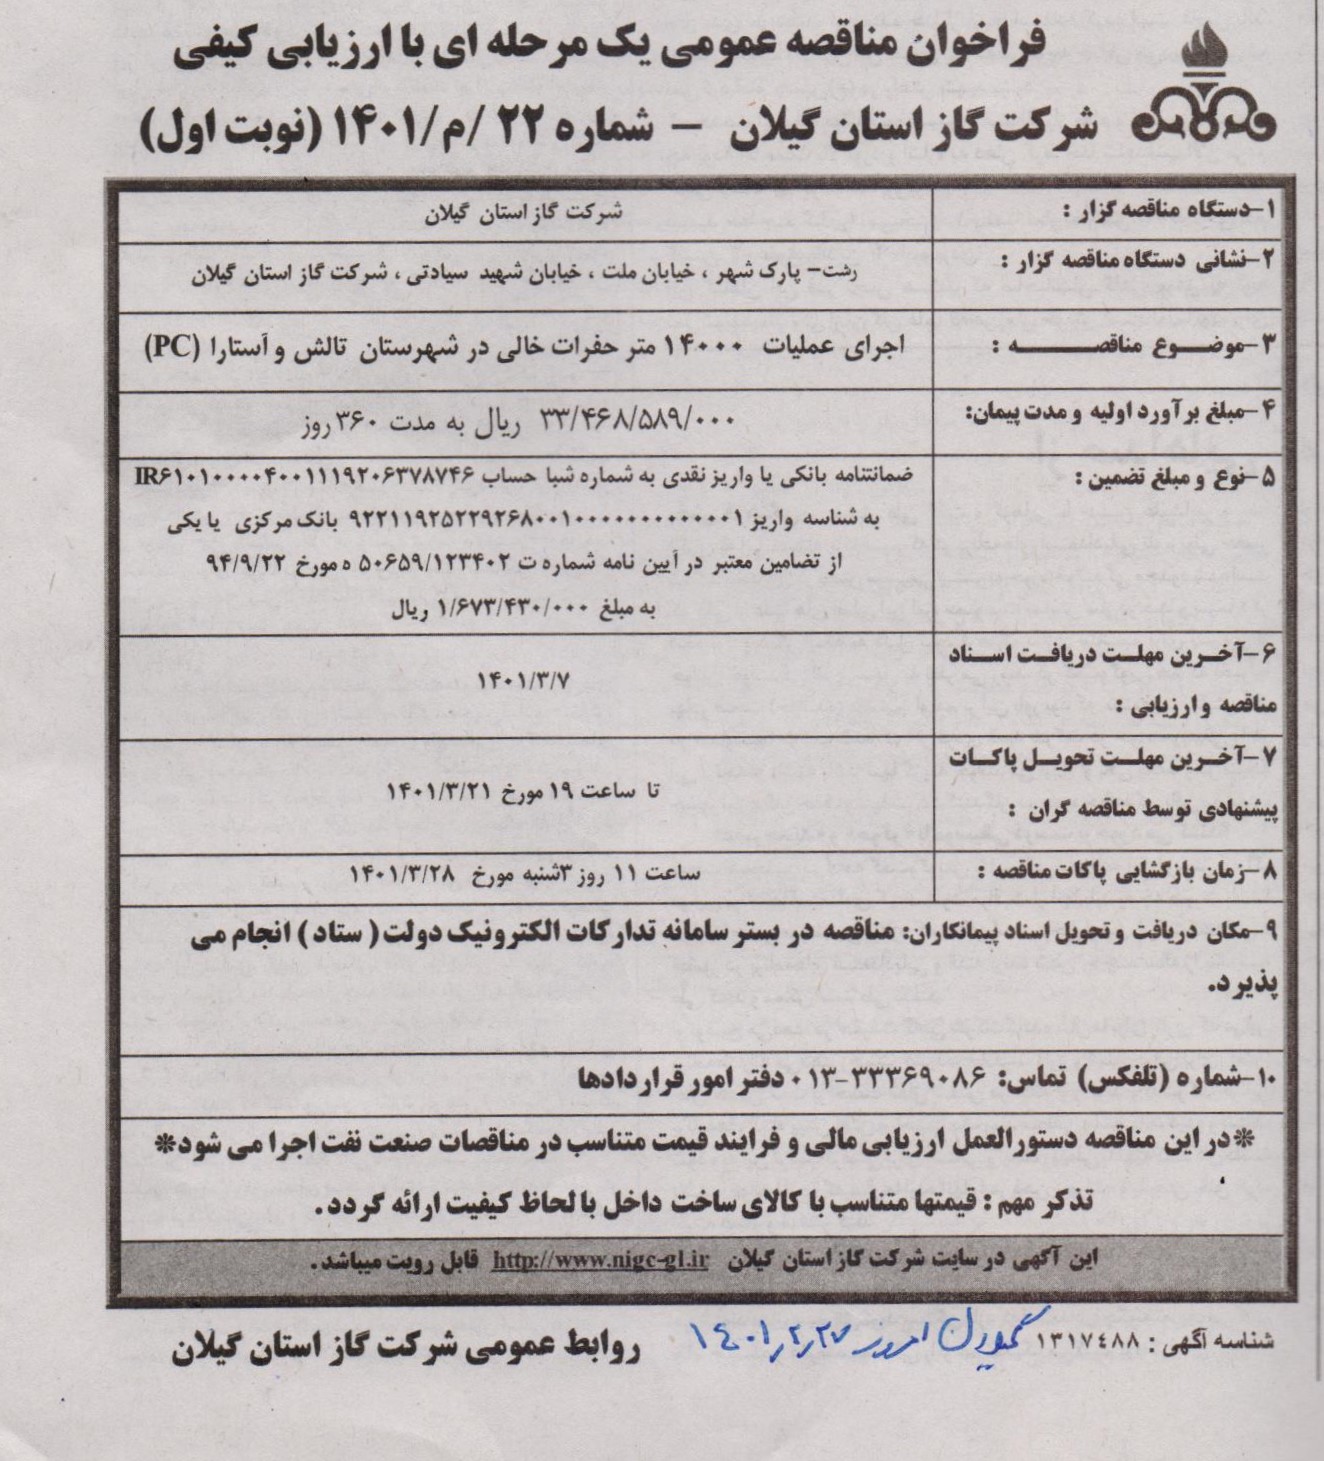 فراخوان مناقصه عمومی یک مرحله ای با ارزیابی کیفی
شرکت گاز استان گیلان – شماره ۲۲ /م/۱۴۰۱ (نوبت اول)
۱-دستگاه مناقصه گزار :
شرکت گاز استان گیلان
۲-نشانی دستگاه مناقصه گزار :
رشت- پارک شهر ، خیابان ملت ، خیابان شهید سیادتی ، شرکت گاز استان گیلان
۳-موضوع مناقصه :
اجرای عملیات ۱۴۰۰۰ متر حفرات خالی در شهرستان تالش و آستارا (PC)
۴-مبلغ برآورد اولیه و مدت پیمان:
۳۳/۴۶۸/۵۸۹/۰۰۰ ریال به مدت ۳۶۰ روز
۵-نوع و مبلغ تضمین :
ضمانتنامه بانکی یا واریز نقدی به شماره شبا حساب IR۶۱۰۱۰۰۰۰۴۰۰۱۱۱۹۲۰۶۳۷۸۷۴۶
به شناسه واریز ۹۲۲۱۱۹۲۵۲۲۹۲۶۸۰۰۱۰۰۰۰۰۰۰۰۰۰۰۰۰۱ بانک مرکزی یا یکی
از تضامین معتبر در آیین نامه شماره ت ۵۰۶۵۹/۱۲۳۴۰۲ ه مورخ ۹۴/۹/۲۲
به مبلغ ۱/۶۷۳/۴۳۰/۰۰۰ ریال
۶-آخرین مهلت دریافت اسناد
مناقصه و ارزیابی :
۱۴۰۱/۳/۷
۷-آخرین مهلت تحویل پاکات
پیشنهادی توسط مناقصه گران :
تا ساعت ۱۹ مورخ ۱۴۰۱/۳/۲۱
۸-زمان بازگشایی پاکات مناقصه :
ساعت ۱۱ روز ۳شنبه مورخ ۱۴۰۱/۳/۲۸
۹-مکان دریافت و تحویل اسناد پیمانکاران: مناقصه در بستر سامانه تدارکات الکترونیک دولت( ستاد ) انجام می
پذیرد.
۱۰-شماره (تلفکس) تماس: ۳۳۳۶۹۰۸۶-۰۱۳ دفتر امور قراردادها
*در این مناقصه دستورالعمل ارزیابی مالی و فرایند قیمت متناسب در مناقصات صنعت نفت اجرا می شود*
تذکر مهم : قیمتها متناسب با کالای ساخت داخل با لحاظ کیفیت ارائه گردد .
این آگهی در سایت شرکت گاز استان گیلان http://www.nigc-gl.ir قابل رویت میباشد .
شناسه آگهی : ۱۳۱۷۴۸۸ گیلان امروز ۱۴۰۱/۲/۲۷
روابط عمومی شرکت گاز استان گیلان